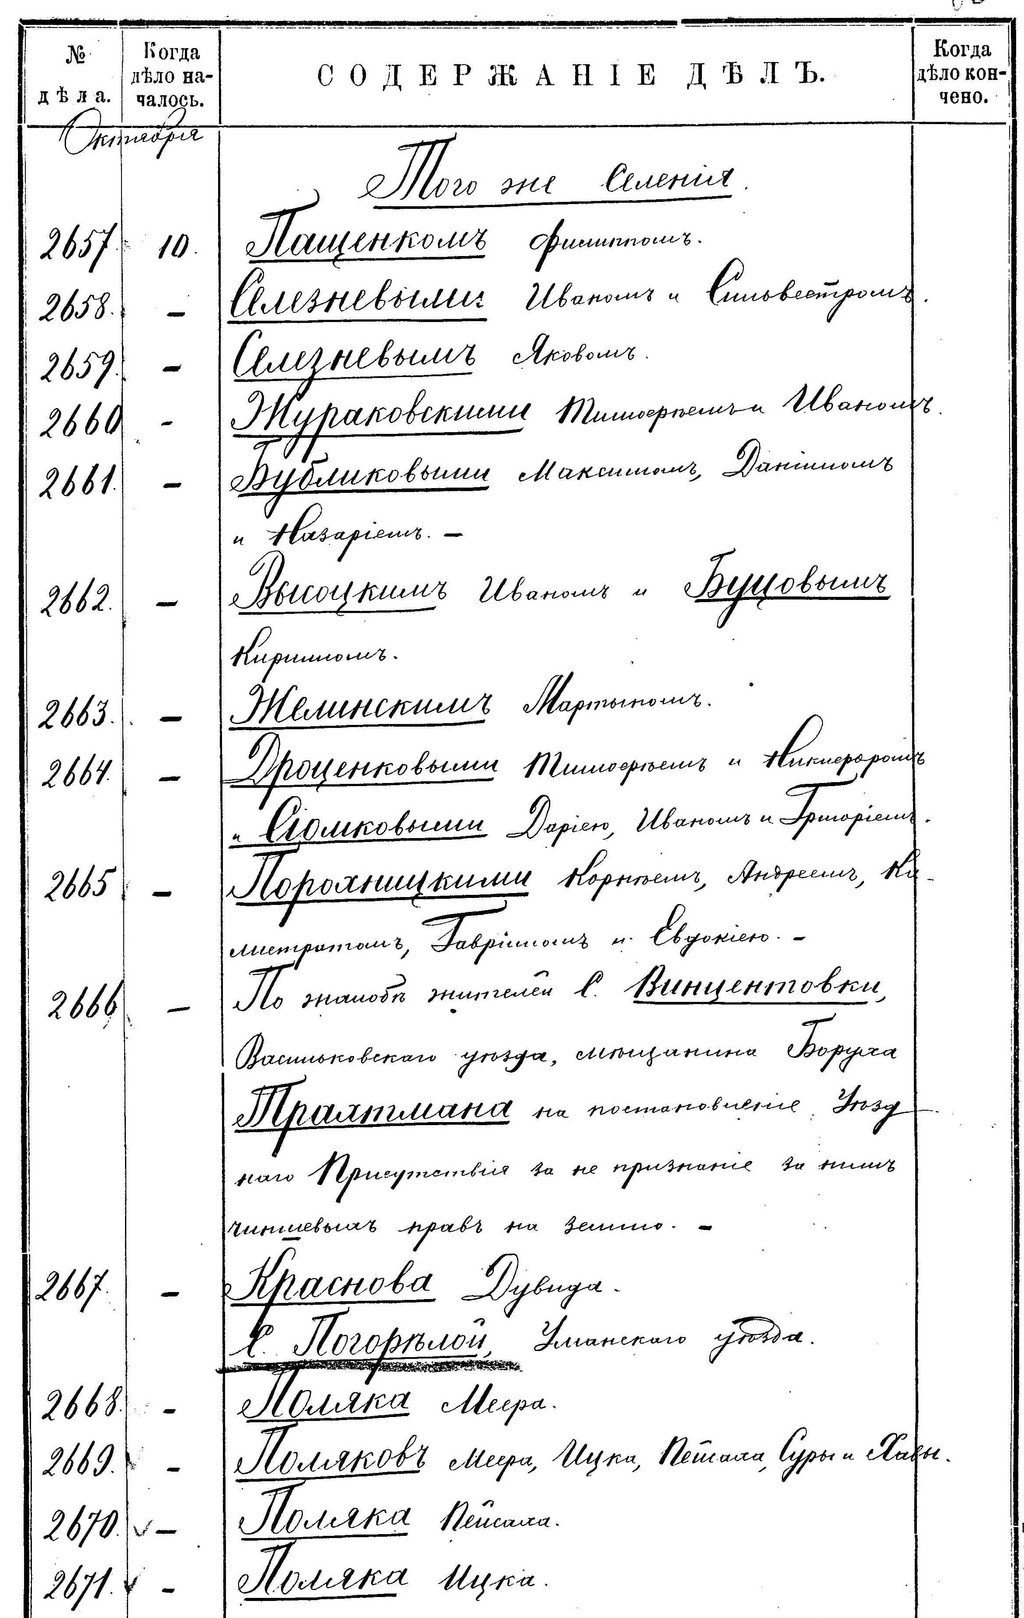 № дѣла.
Когда дѣло на-чалось.
СОДЕРЖАНІЕ ДѢЛЪ.
Когда дѣло кон-чено.
Октября
Того же Селенія.
2657. 10. Пащенкомъ Филиппомъ.
2658. — Селезневыми: Иваномъ и Сильвестромъ.
2659. — Селезневымъ Яковомъ.
2660 — Жураковскими Тимофѣемъ и Иваномъ.
2661. — Бубликовыми Максимомъ, Даніиломъ
и Назаріемъ. —
2662. — Высоцкимъ Иваномъ и Буцовымъ
Кирилломъ.
2663. — Желинскимъ Мартыномъ.
2664. — Дроценковыми Тимофѣемъ и Никифоромъ
и Сіомковыми Даріею, Иваномъ и Григоріемъ.
2665 — Порохницкими Корнѣемъ, Андреемъ, Ка-
листратомъ, Гавріиломъ и Евдокіею. —
2666 — По жалобѣ жителей С. Винцентовки,
Васильковскаго уѣзда, мѣщанина Боруха
Траятмана на постановленіе Уѣзд
наго Присутствія за не признаніе за нимъ
чиншевыхъ правъ на землю. —
2667. — Краснова Дувида.
С. Погорѣлой, Уманскаго уѣзда.
2668. — Поляка Меера.
2669. — Поляковъ Меера, Ицка, Пейсаха, Суры и Хавы.
2670. — Поляка Пейсаха.
2671. — Поляка Ицка.